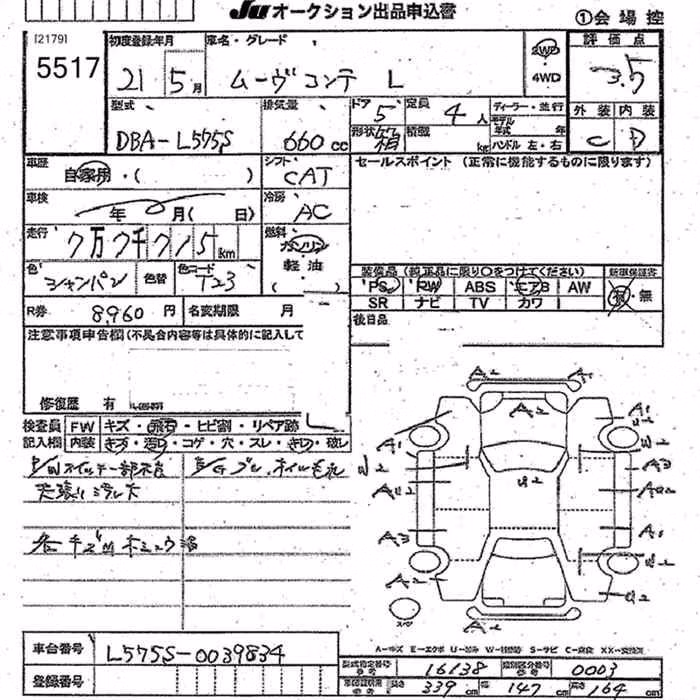 JU オークション出品申込書
①会場控
[2179]
5517
初度登録年月
21 5月
車名・グレード
ムーヴ コンテ L
2WD
4WD
評価点
3.5
型式
DBA-L575S
排気量
660cc
ドア 5
定員 4人
形状 箱
積載 kg
ディーラー・並行
モデル年式 年
ハンドル 左・右
外装 内装
C D
車歴
自家用・( )
シフト
CAT
セールスポイント (正常に機能するものに限ります)
車検
年 月( 日)
冷房
AC
走行
7万7千715km
燃料
ガソリン
軽油
色
シャンパン
色替
色コード
T23
装備品(純正品に限り○をつけてください)
新車保証書
PS PW ABS エアB AW
有・無
SR ナビ TV カワ
R券 8,960円
名変期限 月
後日品
注意事項申告欄(不具合内容等は具体的に記入して
修復歴 有
検査員 FW キズ・飛石・ヒビ割・リペア跡
記入欄 内装 キズ・汚れ・コゲ・穴・スレ・キレ・破れ
P/Wスイッチ一部不良
天張り
各キズ凹
A2 A1
A2
A1 A1
W2 W2
U2
A3
AU2 AU2
A3 A1
W2
A2 U2
A2
A-キズ E-エクボ U-凹み W-補修跡 S-サビ C-腐食 XX-交換済
車台番号 L575S-0039834
型式指定番号 16138 類別区分番号 0003
登録番号
長さ 339cm 幅 147cm 高さ 164cm